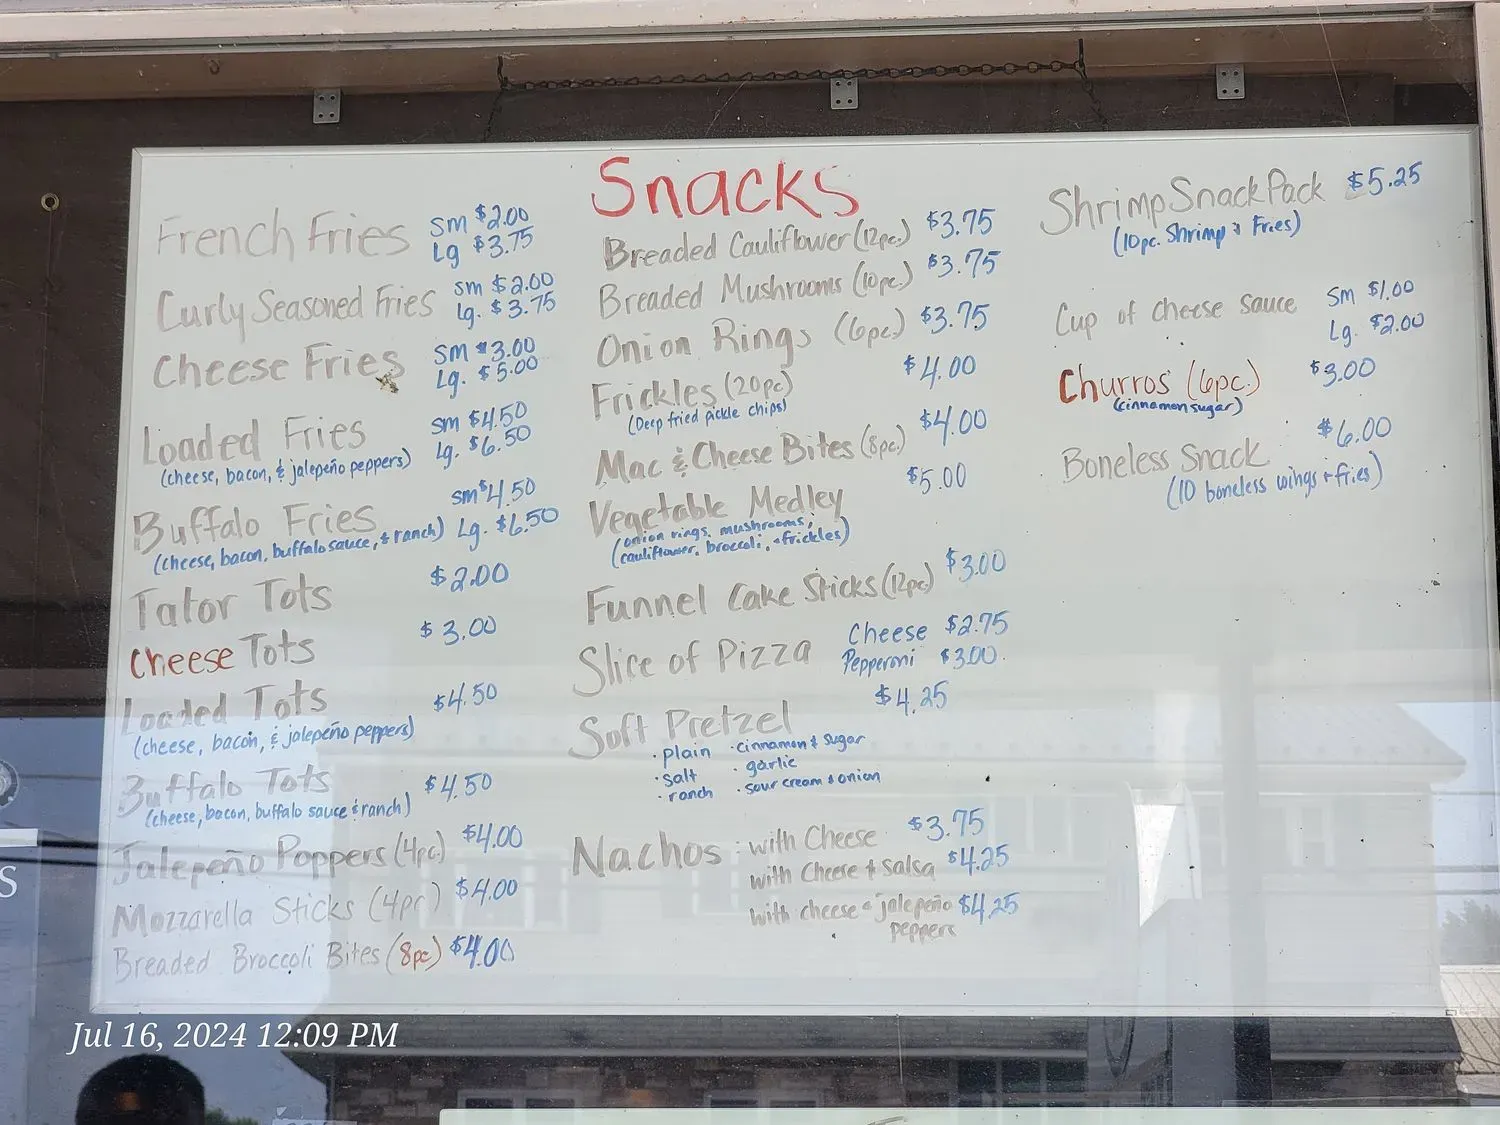 Snacks
French Fries Sm $2.00
Lg $3.75
Curly Seasoned Fries Sm $2.00
Lg. $3.75
Cheese Fries Sm $3.00
Lg. $5.00
Loaded Fries Sm $4.50
(cheese, bacon, & jalepeño peppers) Lg. $6.50
Buffalo Fries Sm $4.50
(cheese, bacon, buffalo sauce, & ranch) Lg. $6.50
Tator Tots $2.00
Cheese Tots $3.00
Loaded Tots $4.50
(cheese, bacon, & jalepeño peppers)
Buffalo Tots $4.50
(cheese, bacon, buffalo sauce & ranch)
Jalepeño Poppers (4pc) $4.00
Mozzarella Sticks (4pc) $4.00
Breaded Broccoli Bites (8pc) $4.00
Breaded Cauliflower (12pc.) $3.75
Breaded Mushrooms (10pc.) $3.75
Onion Rings (6pc.) $3.75
Frickles (20pc) $4.00
(Deep fried pickle chips)
Mac & Cheese Bites (8pc) $4.00
Vegetable Medley $5.00
(onion rings, mushrooms,
cauliflower, broccoli, + frickles)
Funnel Cake Sticks (12pc) $3.00
Slice of Pizza Cheese $2.75
Pepperoni $3.00
Soft Pretzel $4.25
· plain · cinnamon & sugar
· salt · garlic
· ranch · sour cream & onion
Nachos : with Cheese $3.75
with Cheese & salsa $4.25
with cheese & jalepeño $4.25
peppers
Shrimp Snack Pack $5.25
(10pc. Shrimp & Fries)
Cup of cheese sauce Sm $1.00
Lg. $2.00
Churros (6pc.) $3.00
(cinnamon sugar)
Boneless Snack $6.00
(10 boneless wings + fries)
S
Jul 16, 2024 12:09 PM